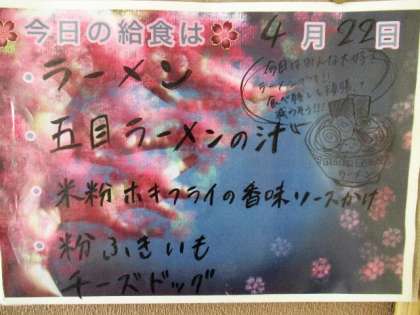 今日の給食は 4月22日
・ラーメン
・五目ラーメンの汁
・米粉ホキフライの香味ソースがけ
・粉ふきいも
チーズドッグ
今日はみんな大好き
ラーメン